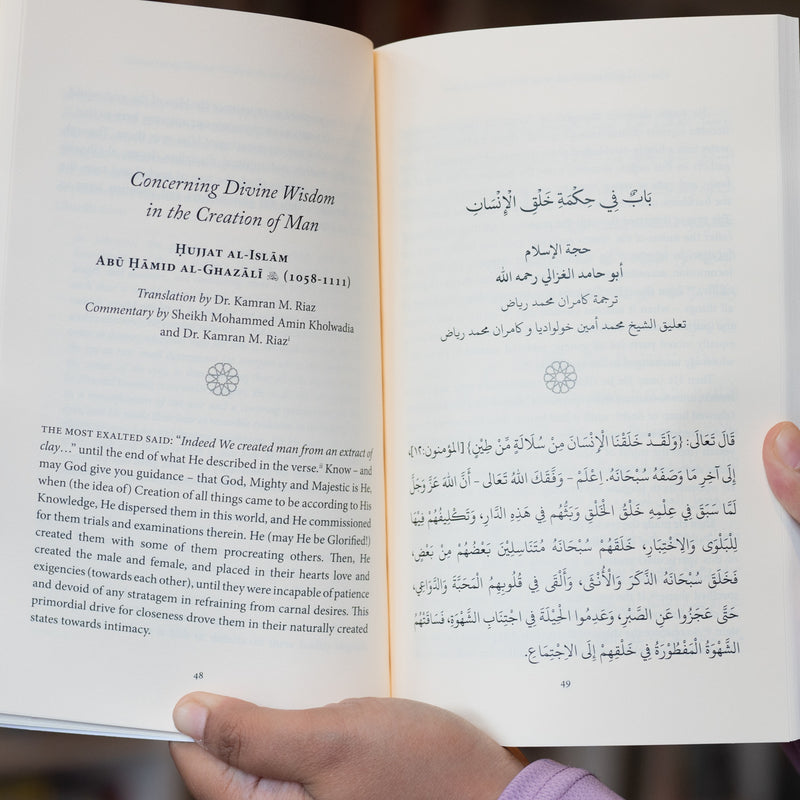 Concerning Divine Wisdom
in the Creation of Man
Ḥujjat al-Islām
Abū Ḥāmid al-Ghazālī (1058-1111)
Translation by Dr. Kamran M. Riaz
Commentary by Sheikh Mohammed Amin Kholwadia
and Dr. Kamran M. Riazⁱ
The Most Exalted said: “Indeed We created man from an extract of
clay…” until the end of what He described in the verse.ⁱⁱ Know – and
may God give you guidance – that God, Mighty and Majestic is He,
when (the idea of) Creation of all things came to be according to His
Knowledge, He dispersed them in this world, and He commissioned
for them trials and examinations therein. He (may He be Glorified!)
created them with some of them procreating others. Then, He
created the male and female, and placed in their hearts love and
exigencies (towards each other), until they were incapable of patience
and devoid of any stratagem in refraining from carnal desires. This
primordial drive for closeness drove them in their naturally created
states towards intimacy.
48
بَابٌ فِي حِكْمَةِ خَلْقِ الْإِنْسَانِ
حجة الإسلام
أبو حامد الغزالي رحمه الله
ترجمة كامران محمد رياض
تعليق الشيخ محمد أمين خولواديا و كامران محمد رياض
قَالَ تَعَالَى: {وَلَقَدْ خَلَقْنَا الْإِنْسَانَ مِنْ سُلَالَةٍ مِّنْ طِينٍ} [المؤمنون:١٢]،
إِلَى آخِرِ مَا وَصَفَهُ سُبْحَانَهُ. اِعْلَمْ - وَفَّقَكَ اللهُ تَعَالَى - أَنَّ اللهَ عَزَّ وَجَلَّ
لَمَّا سَبَقَ فِي عِلْمِهِ خَلْقُ الْخَلْقِ وَبَثُّهُمْ فِي هَذِهِ الدَّارِ، وَتَكْلِيفُهُمْ فِيهَا
لِلْبَلْوَى وَالِاخْتِبَارِ، خَلَقَهُمْ سُبْحَانَهُ مُتَنَاسِلِينَ بَعْضُهُمْ مِنْ بَعْضٍ،
فَخَلَقَ سُبْحَانَهُ الذَّكَرَ وَالْأُنْثَى، وَأَلْقَى فِي قُلُوبِهِمُ الْمَحَبَّةَ وَالدَّوَاعِي،
حَتَّى عَجَزُوا عَنِ الصَّبْرِ، وَعَدِمُوا الْحِيلَةَ فِي اجْتِنَابِ الشَّهْوَةِ، فَسَاقَتْهُمُ
الشَّهْوَةُ الْمَفْطُورَةُ فِي خَلْقِهِمْ إِلَى الِاجْتِمَاعِ.
49